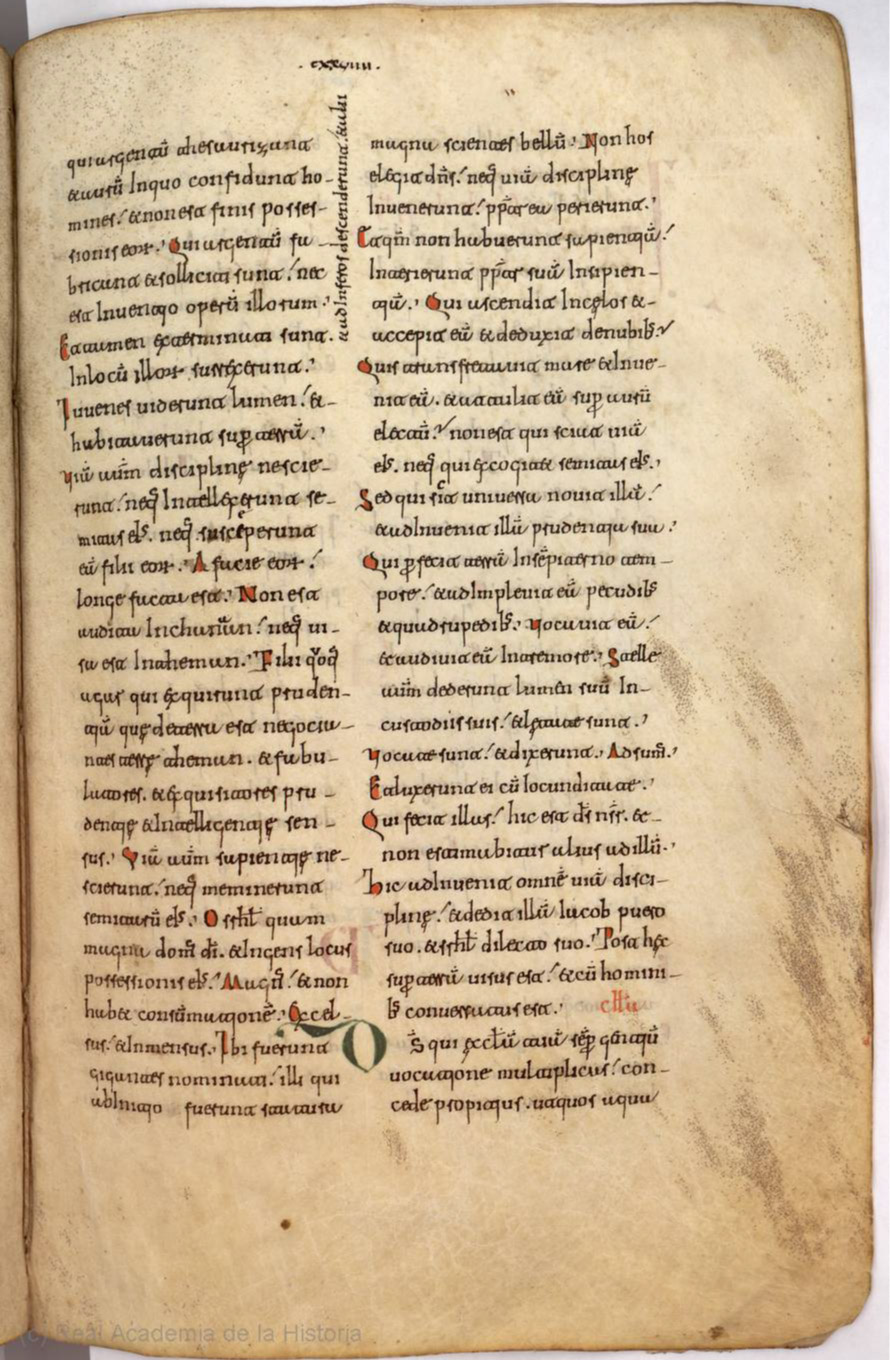 · cxxviiii ·
qui argentū thesaurizant
& aurū Inquo confidunt ho-
mines. & non est finis posses-
sionis eoꝝ. Qui argentū fa-
bricant & solliciti sunt. nec
est Inventio operū illorum.
Et tamen exterminati sunt.
& ad Inferos descenderunt. & alii
Inlocū illoꝝ surrexerunt.
Iuvenes viderunt lumen. &-
habitaverunt suꝑ terrā.
viā autm̄ disciplinę nescie-
runt. neq̄ Intellexerunt se-
mitas eis̄. neq̄ susceperunt
eā filii eoꝝ. A facie eoꝝ.
longe facta est. Non est
audita Inchanaan. neq̄ vi-
sa est Intheman. Filii q̄oq̄
agar qui exquirunt pruden-
tiā quę deterra est negocia-
tores terrę theman. & fabu-
latores. & exquisitores pru-
dentię & Intelligentię sen-
sus. Viā autm̄ sapientię ne-
scierunt. neq̄ meminerunt
semitarū eis̄. O isrhl̄ quam
magna dom̄ dī. & Ingens locus
possessionis eis̄. Magn̄. & non
hab& consūmationē. Excel-
sus. & Inmensus. Ibi fuerunt
gigantes nominati. illi qui
ab Initio fuerunt statura
magna scientes bellū. Non hos
elegit dn̄s. neq̄ viā disciplinę
Invenerunt. ꝓpt̄ea perierunt.
Et qm̄ non habuerunt sapientiā.
Interierunt ꝓpt̄ suā Insipien-
tiā. Qui ascendit Incęlos &-
accepit eā & deduxit denubib;
Quis transfretavit mare & Inve-
nit eā. & attulit eā suꝑ aurū
electū. non est qui sciat viā
eis̄. neq̄ qui excogit& semitas eis̄.
Sed qui scit universa novit illā.
& adInvenit illā prudentia sua.
Qui ꝓfecit terrā Insēpiterno tem-
pore. & adImplevit eā pecudib;
& quadrupedib;. vocavit eā.
& audivit eā Intremore. Stelle
autm̄ dederunt lumen suū In-
custodiis suis. & lętate sunt.
vocate sunt. & dixerunt. Adsum̄.
Et luxerunt ei cū Iocunditate.
Qui fecit illas. hic est dś nr̄. &-
non estimabitur alius ad illū.
Hic adInvenit omnē viā disci-
plinę. & dedit illā Iacob puero
suo. & isrhl̄ dilecto suo. Post hęc
suꝑ terrā visus est. & cū homini-
b; conversatus est.
Ds̄ qui eccl̄ā tuā sēꝑ gentiū
vocatione multiplicas. con-
cede propitius. ut quos aqua